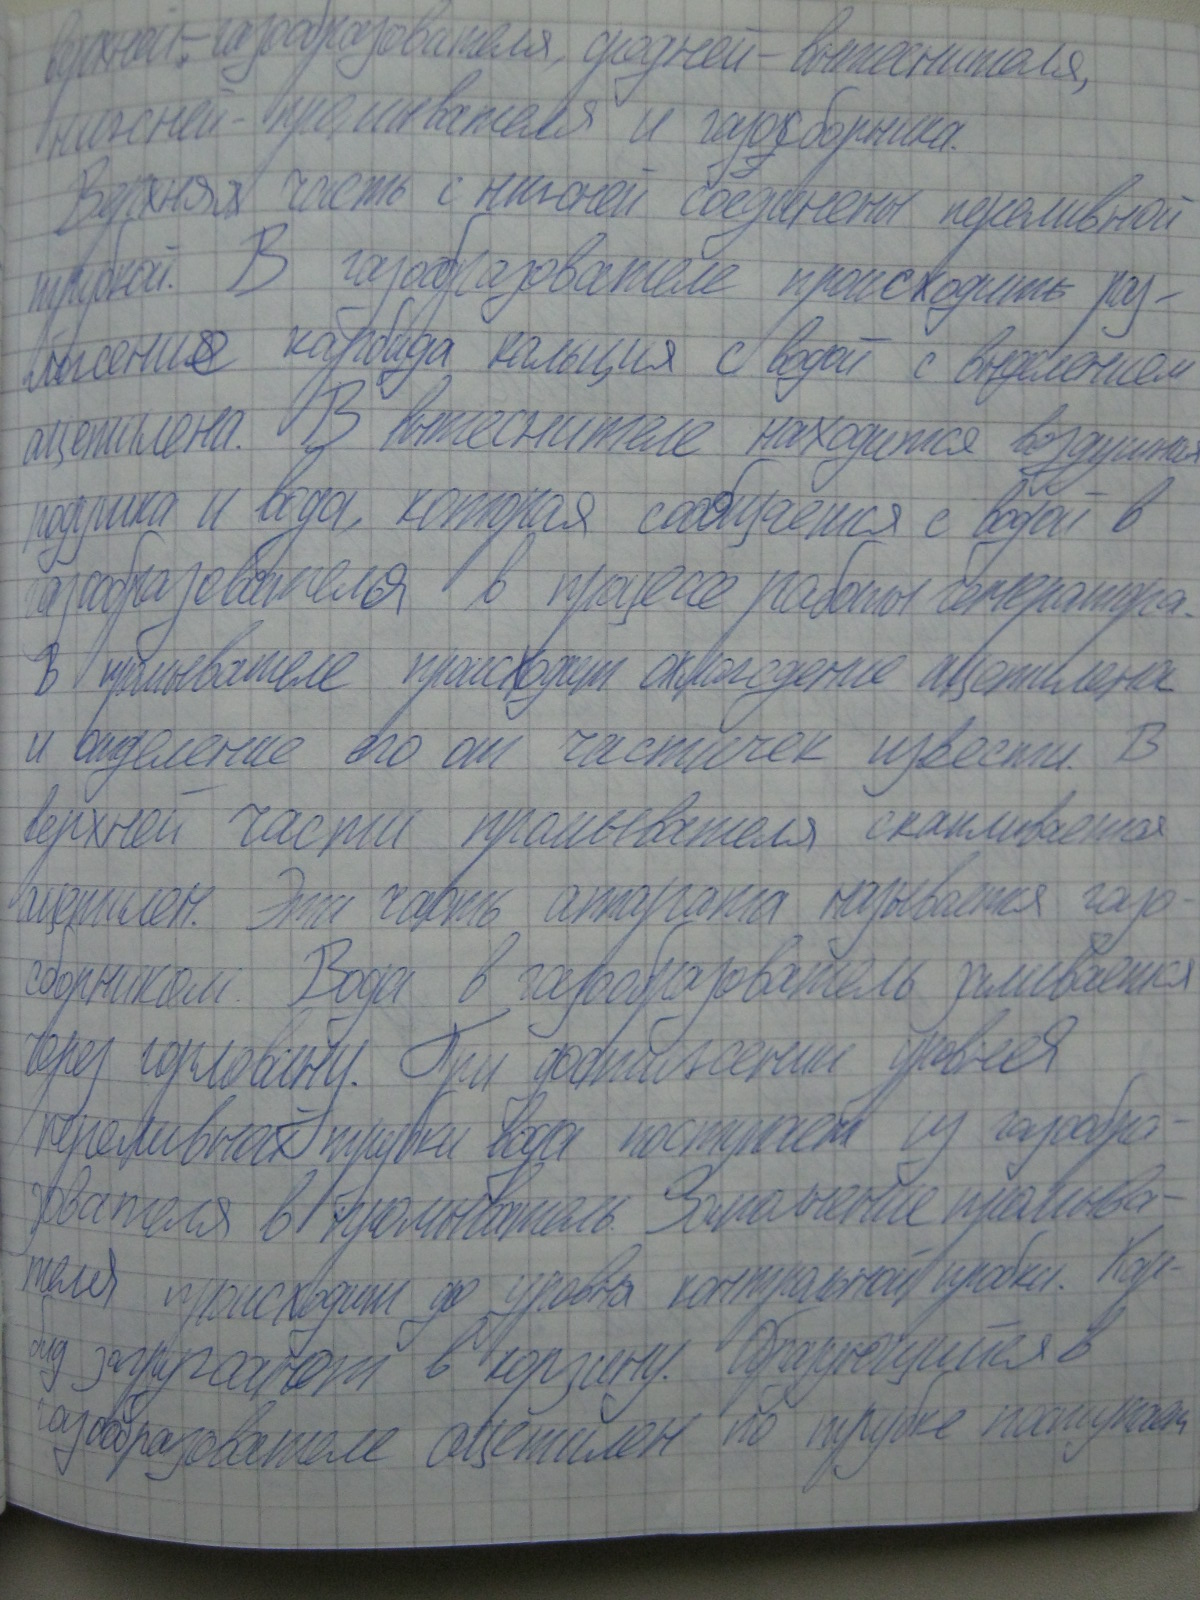 верхней-газообразователя, средней-вытеснителя,
нижней-промывателя и газосборника.
Верхняя часть с нижней соединены переливной
трубкой. В газообразователе происходить раз-
ложение карбида кальция с водой с выделением
ацетилена. В вытеснителе находится воздушная
подушка и вода, которая сообщается с водой в
газообразователя в процессе работы генератора.
В промывателе происходит охлождение ацетилена
и отделение его от частичек извести. В
верхней части промывателя скапливается
ацетилен. Эти часть аппарата называется газо-
сборником. Вода в газообразователь заливается
через горловину. При достижении уровня
переливной трубки вода поступает из газообра-
зователя в промыватель. Заполнение промыва-
теля происходит до уровня контрольной пробки. Кар-
бид загружают в корзину. Образующийся в
газообразователе ацетилен по трубке поступает